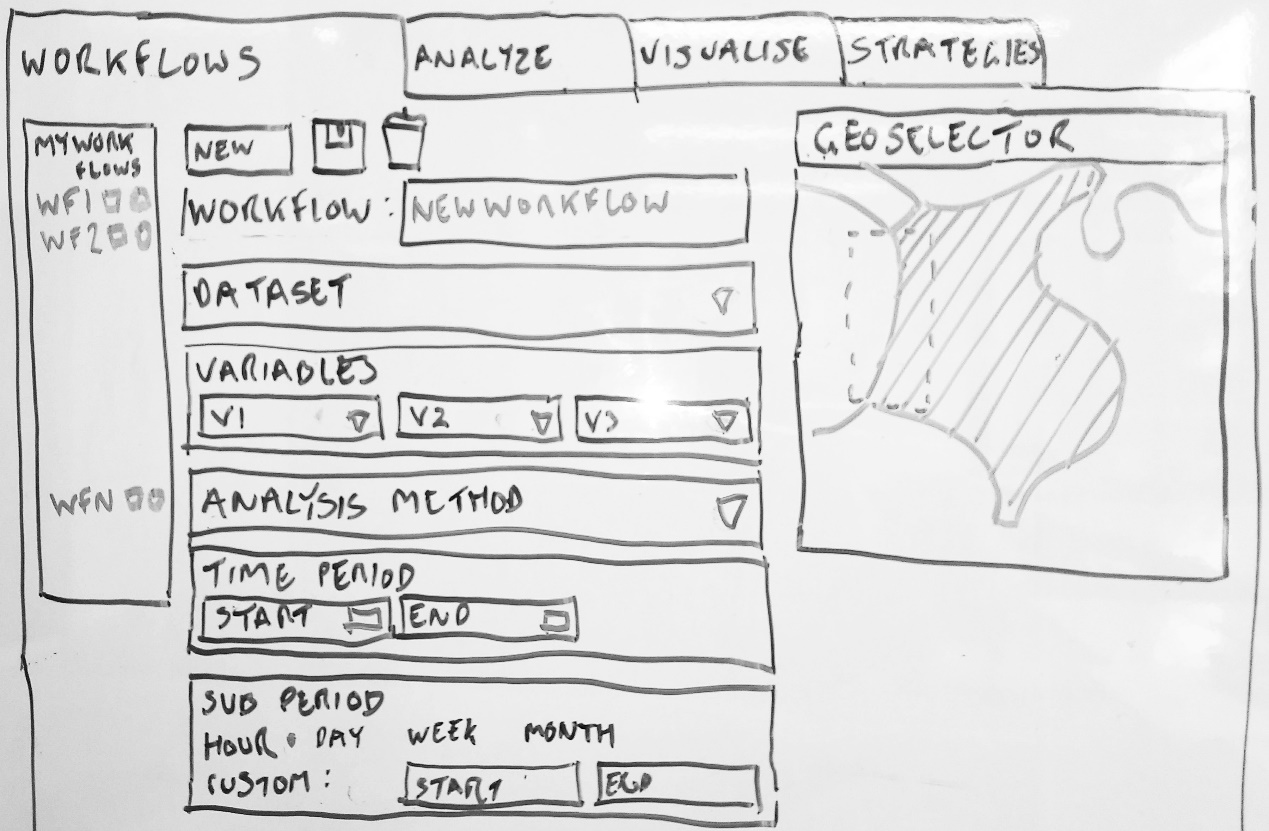 WORKFLOWS
ANALYZE
VISUALISE
STRATEGIES
MY WORK
FLOWS
WF1
WF2
WFN
NEW
WORKFLOW: NEW WORKFLOW
DATASET
VARIABLES
V1 V2 V3
ANALYSIS METHOD
TIME PERIOD
START END
SUB PERIOD
HOUR • DAY WEEK MONTH
CUSTOM: START END
GEOSELECTOR